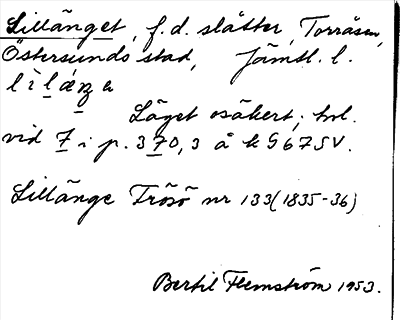 Lillänget, f.d. slåtter, Torråsen,
Östersunds stad, Jämtl. l.
Läget osäkert; trol.
vid 7 i p. 370,3 å k G 675V.
Lillänge Frösö nr 133 (1835-36)
Bertil Flemström 1953.